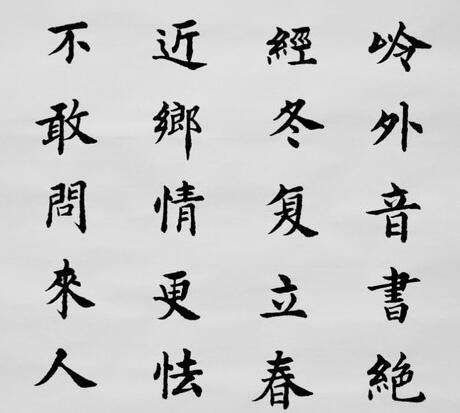 岭外音書絶
經冬复立春
近鄉情更怯
不敢問來人